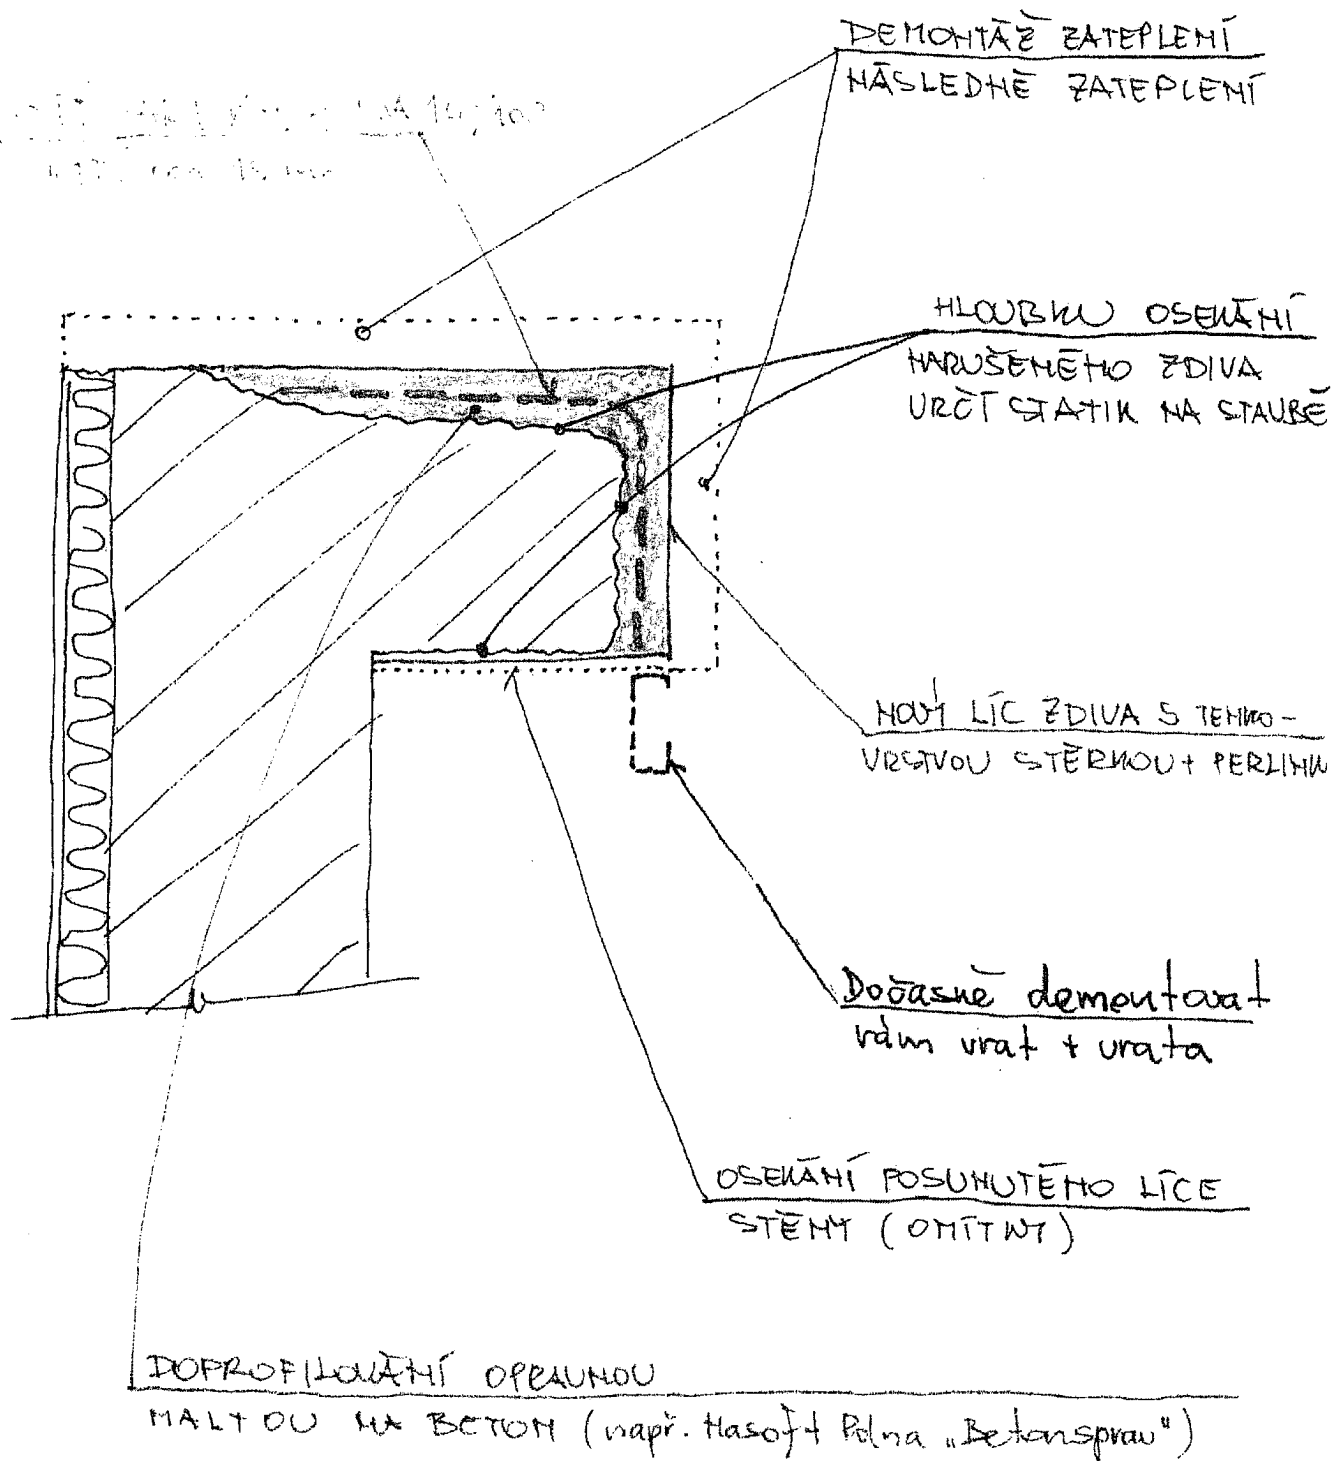 DEMONTÁŽ ZATEPLENÍ
NÁSLEDNĚ ZATEPLENÍ
HLOUBKU OSEKÁNÍ
NARUŠENÉHO ZDIVA
URČÍ STATIK NA STAVBĚ
NOVÝ LÍC ZDIVA S TENKO-
VRSTVOU STĚRKOU + PERLINK
Dočasně demontovat
rám vrat + vrata
OSEKÁNÍ POSUNUTÉHO LÍCE
STĚNY (OMÍTKY)
DOPROFILOVÁNÍ OPRAVNOU
MALTOU NA BETON (např. Hasoft Polna „Betonsprav“)